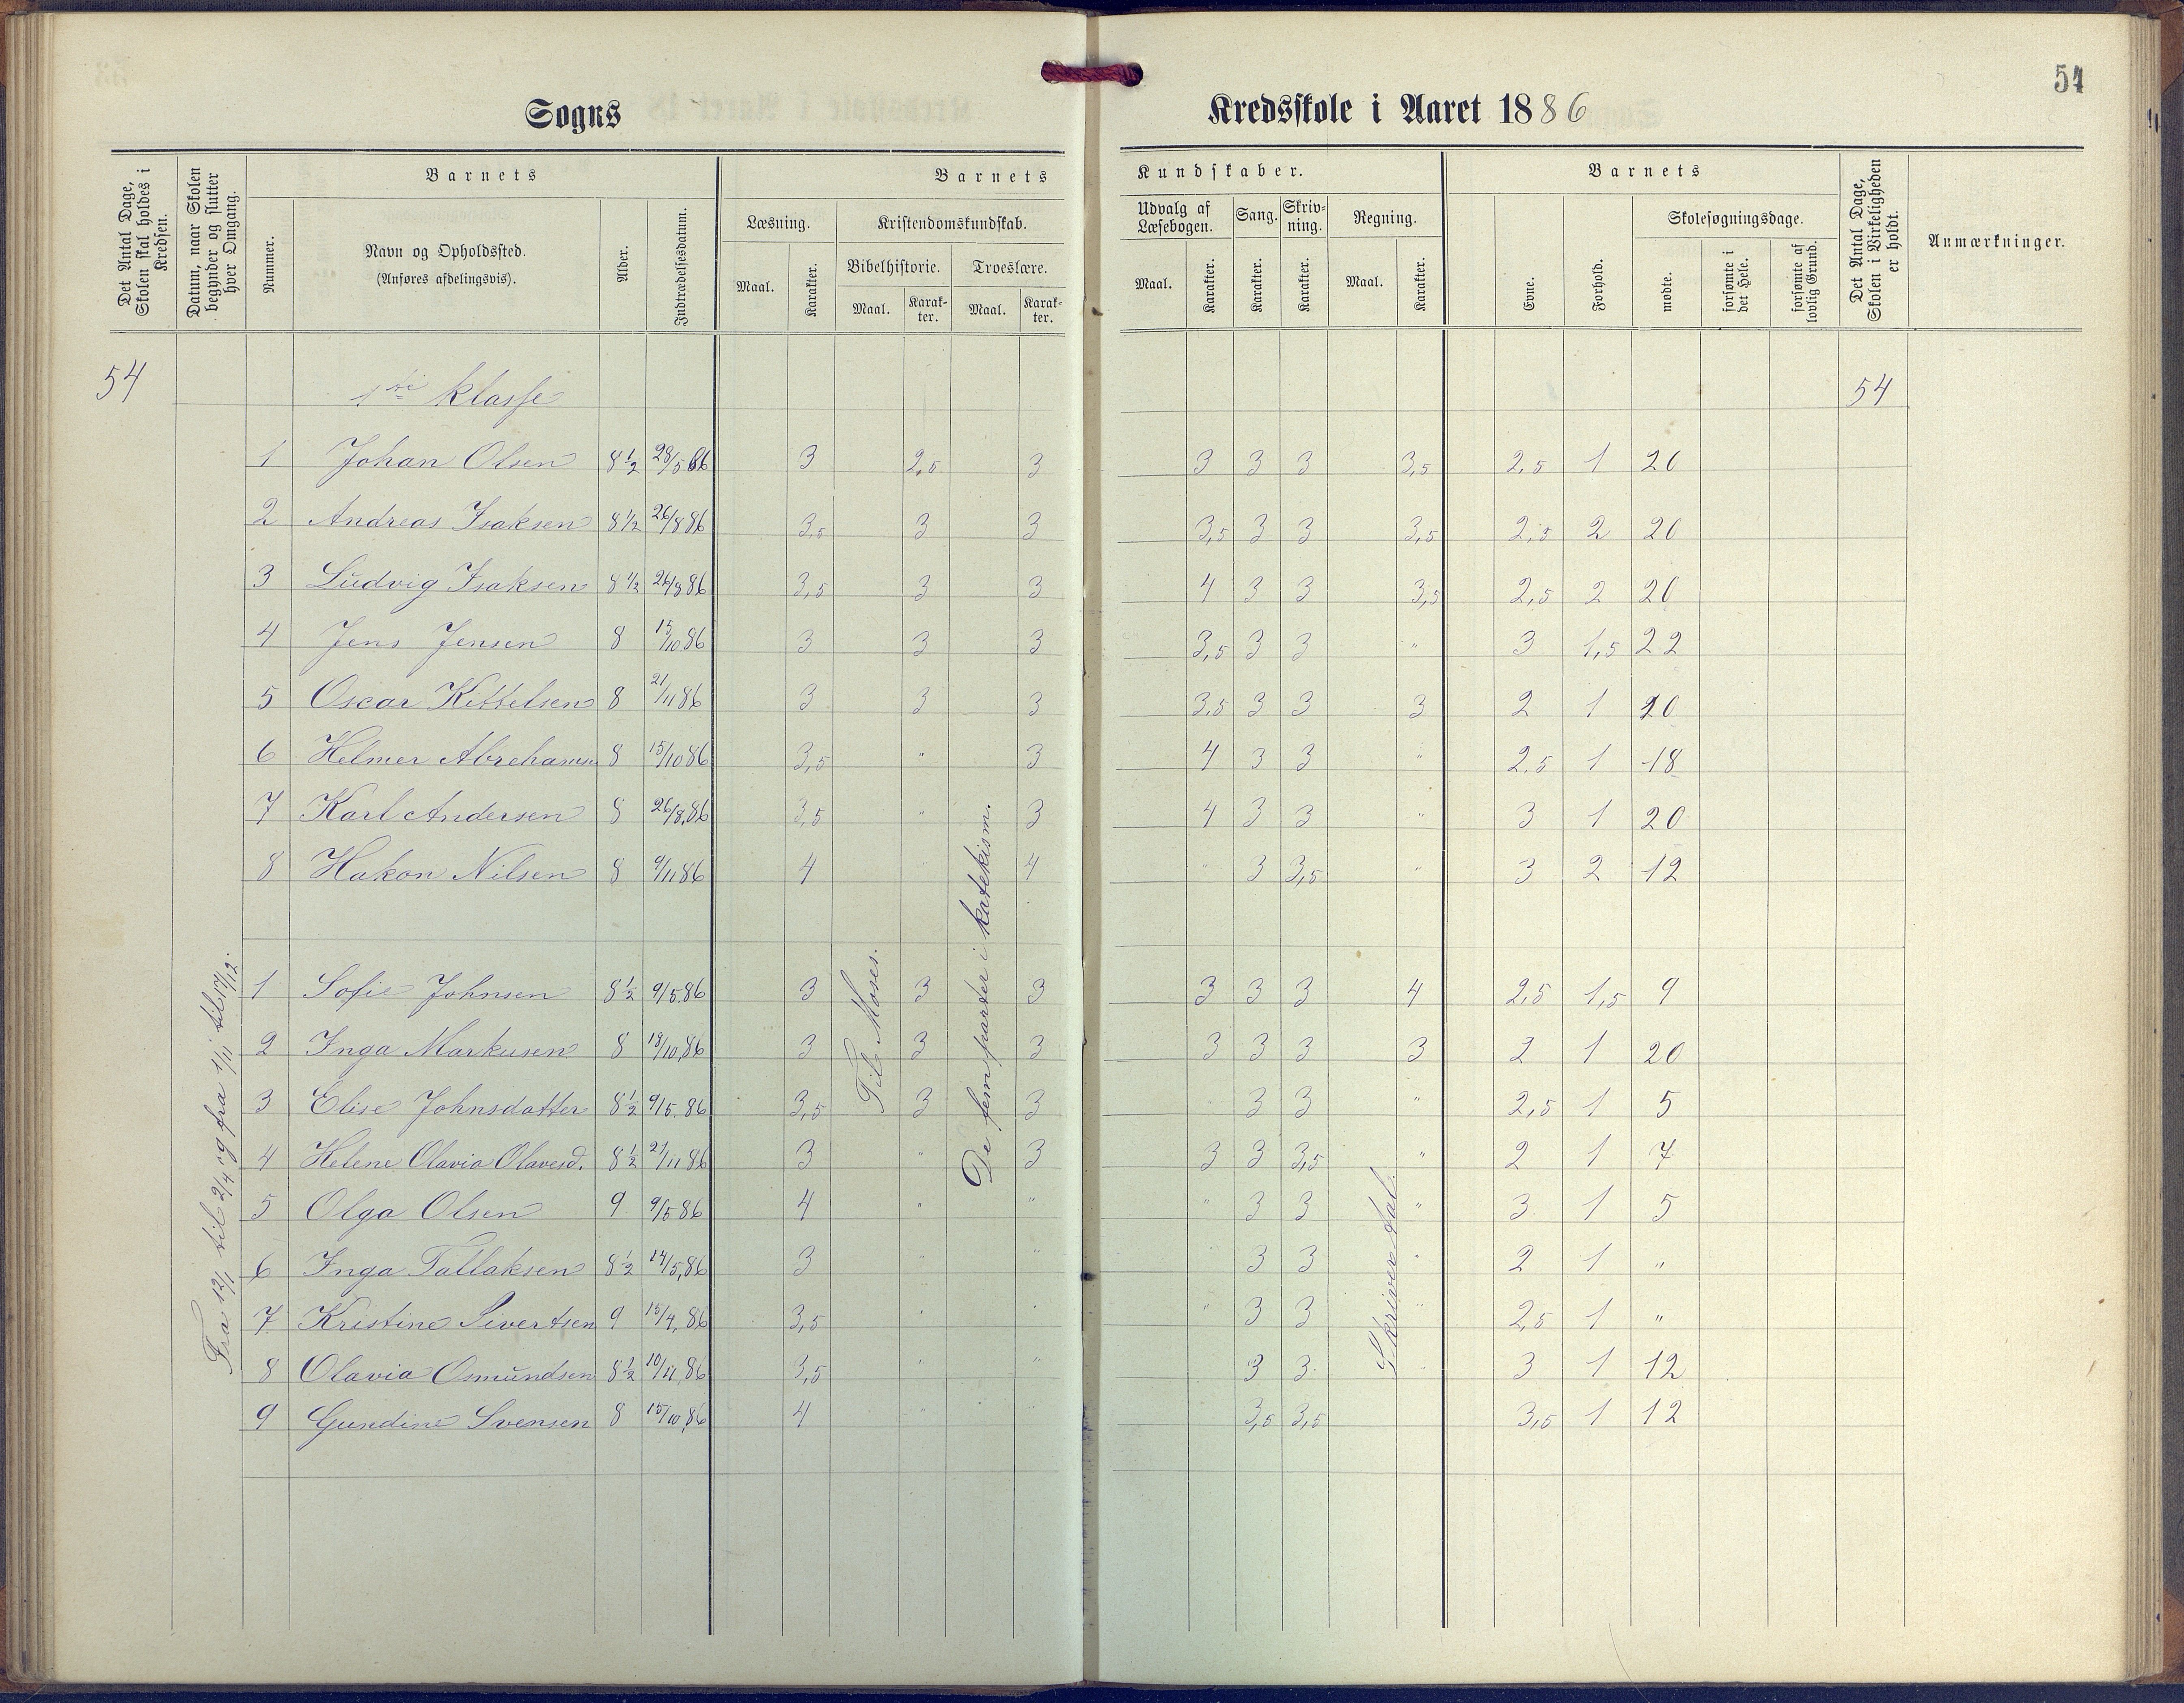 54
Sogns
Kredsskole i Aaret 1886
Det Antal Dage, Skolen skal holdes i Kredsen.
Datum, naar Skolen begynder og slutter hver Omgang.
Barnets
Nummer.
Navn og Opholdssted.
(Anføres afdelingsvis).
Alder.
Indtrædelsesdatum.
Barnets
Læsning.
Maal.
Karakter.
Kristendomskundskab.
Bibelhistorie.
Maal.
Karakter.
Troeslære.
Maal.
Karakter.
Kundskaber.
Udvalg af Læsebogen.
Maal.
Karakter.
Sang.
Karakter.
Skrivning.
Karakter.
Regning.
Maal.
Karakter.
Barnets
Evne.
Forhold.
Skolesøgningsdage.
mødte.
forsømte i det Hele.
forsømte af lovlig Grund.
Det Antal Dage, Skolen i Virkeligheden er holdt.
Anmærkninger.
54 1ste klasse 54
1 Johan Olsen 8½ 28/5 86 3 2,5 3 3 3 3 3,5 2,5 1 20
2 Andreas Isaksen 8½ 26/8 86 3,5 3 3 3,5 3 3 3,5 2,5 2 20
3 Ludvig Isaksen 8½ 26/8 86 3,5 3 3 4 3 3 3,5 2,5 2 20
4 Jens Jensen 8 15/10 86 3 3 3 3,5 3 3 " 3 1,5 22
5 Oscar Kittelsen 8 21/11 86 3 3 3 3,5 3 3 3 2 1 20
6 Helmer Abrehamsn 8 15/10 86 3,5 " 3 4 3 3 " 2,5 1 18
7 Karl Andersen 8 26/8,86 3,5 " 3 4 3 3 " 3 1 20
8 Hakon Nilsen 8 9/11 86 4 " 4 " 3 3,5 " 3 2 12
1 Sofie Johnsen 8½ 9/5.86 3 3 3 3 3 3 4 2,5 1,5 9
2 Inga Markusen 8 13/10,86 3 3 3 3 3 3 3 2 1 20
3 Elise Johnsdatter 8½ 9/5.86 3,5 3 3 " 3 3 " 2,5 1 5
4 Helene Olavia Olavesd. 8½ 21/11 86 3 " 3 3 3 3,5 " 2 1 7
5 Olga Olsen 9 9/5 86 4 " " " 3 3 " 3 1 5
6 Inga Tallaksen 8½ 14/5,86 3 " " " 3 3 " 2 1 "
7 Kristine Sivertsen 9 15/4,86 3,5 " " " 3 3 " 2,5 1 "
8 Olavia Osmundsen 8½ 10/11,86 3,5 " " 3 3 " 3 1 12
9 Gundine Svensen 8 15/10,86 4 " 3,5 3,5 3,5 1 12
Fra 12/1 til 2/4 og fra 1/11 til 17/12.
Til Moses.
De fem parter i katekism.
Skriver tal.